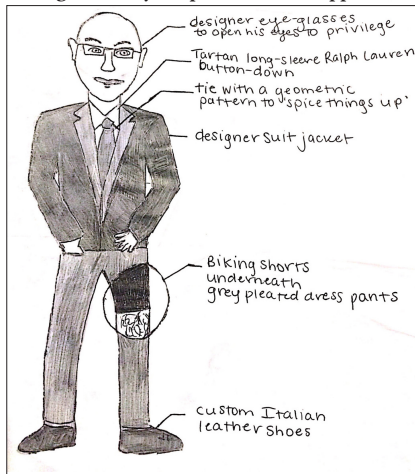 designer eye-glasses
to open his eyes to privilege
Tartan long-sleeve Ralph Lauren
button-down
tie with a geometric
pattern to 'spice things up'
designer suit jacket
Biking shorts
underneath
grey pleated dress pants
custom Italian
leather shoes